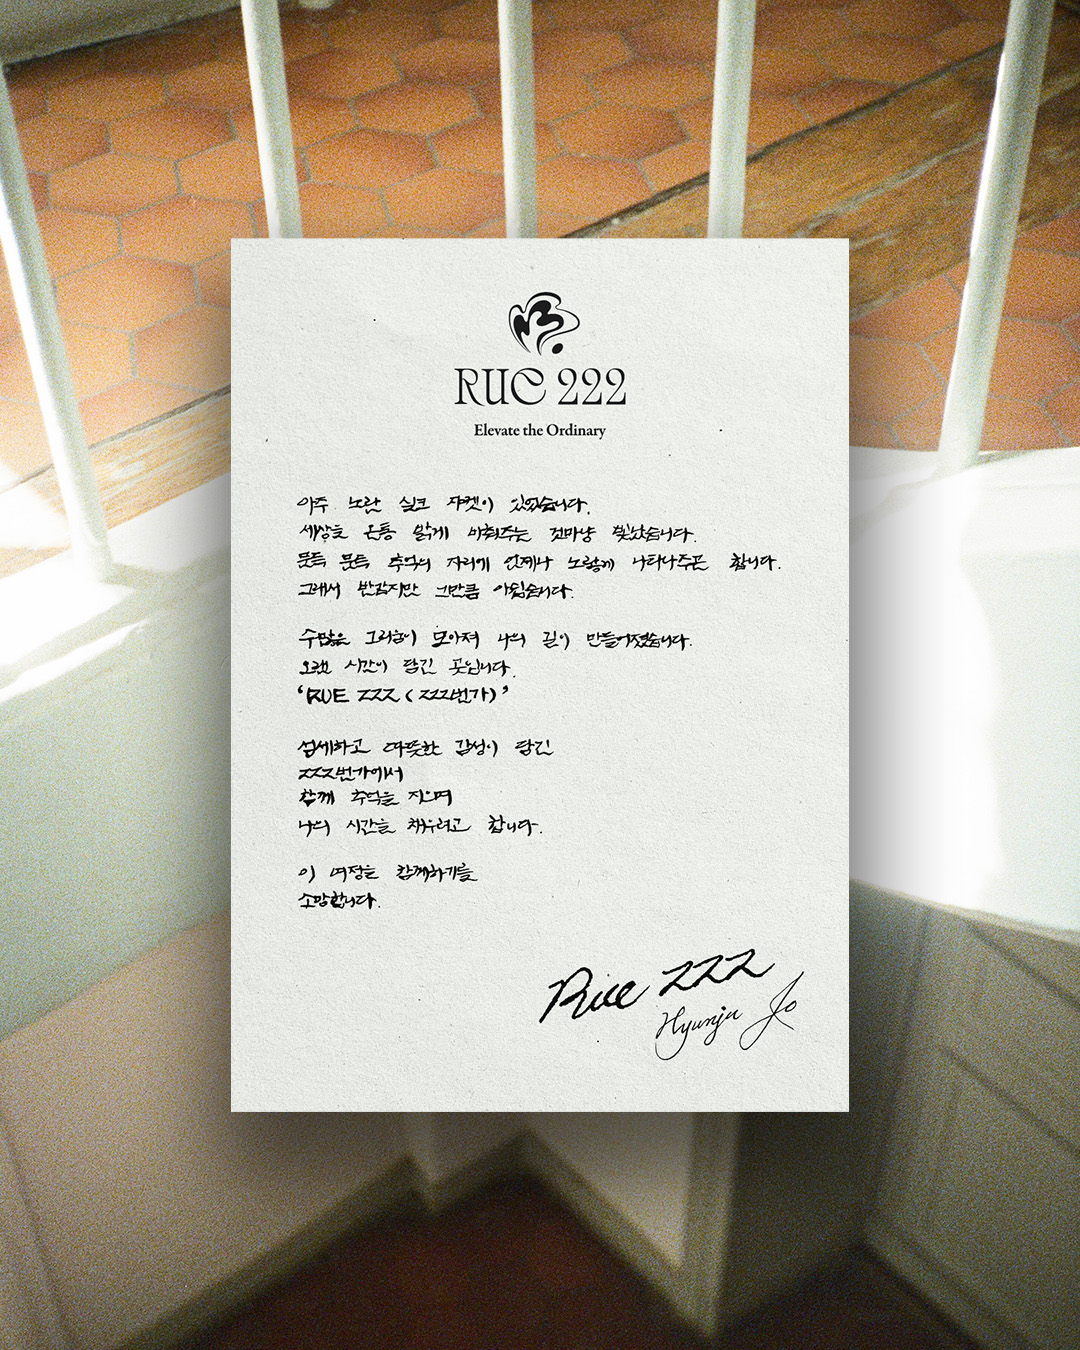 RUE 222
Elevate the Ordinary
아주 노란 실크 쟈켓이 있었습니다.
세상을 온통 밝게 비춰주는 것마냥 빛났습니다.
문득 문득 추억의 자리에 언제나 노랗게 나타나주곤 합니다.
그래서 반갑지만 그만큼 아쉽습니다.
수많은 그리움이 모아져 나의 길이 만들어졌습니다.
오랜 시간이 담긴 곳입니다.
‘RUE 222 (222번가)’
섬세하고 따뜻한 감성이 담긴
222번가에서
함께 추억을 지으며
나의 시간을 채우려고 합니다.
이 여정을 함께하기를
소망합니다.
Rue 222
Hyunju Jo